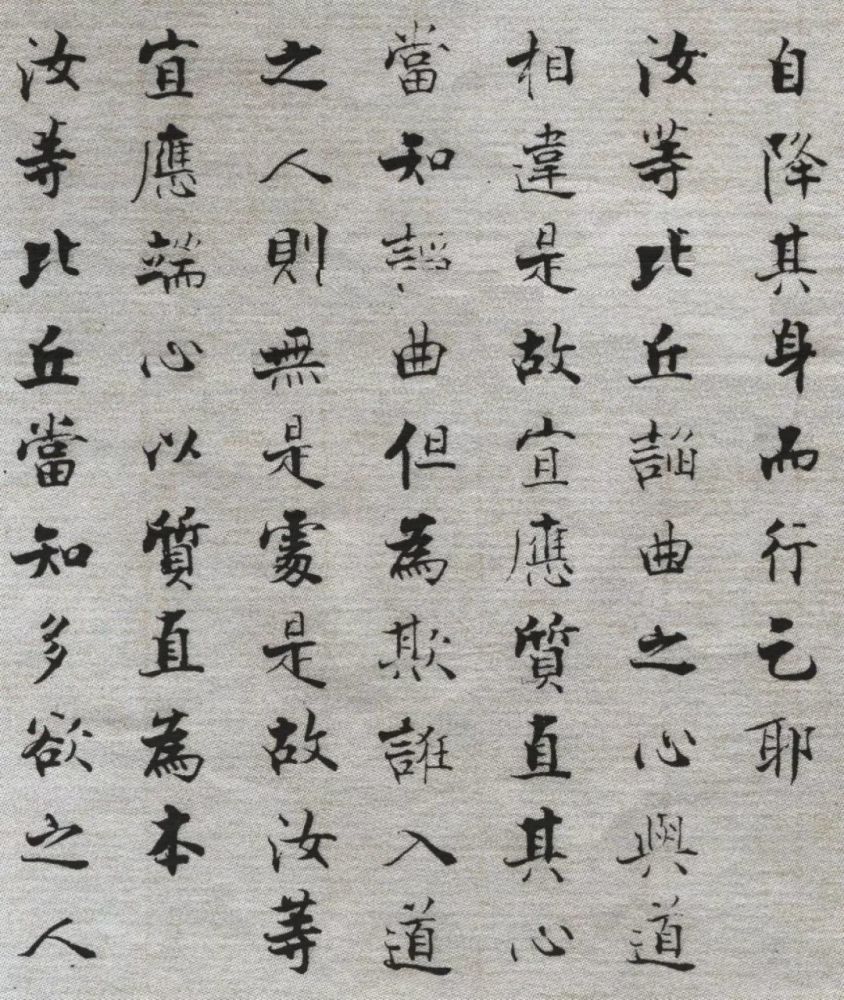 自降其身而行乞耶
汝等比丘諂曲之心與道
相違是故宜應質直其心
當知諂曲但為欺誑入道
之人則無是處是故汝等
宜應端心以質直為本
汝等比丘當知多欲之人